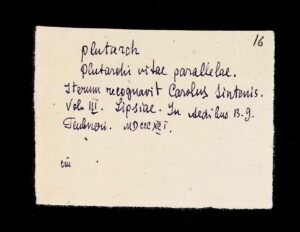 16
plutarch
Plutarchi vitae parallelae.
Iterum recognovit Carolus Sintenis.
Vol. III. Lipsiae. In Aedibus B. G.
Teubneri.